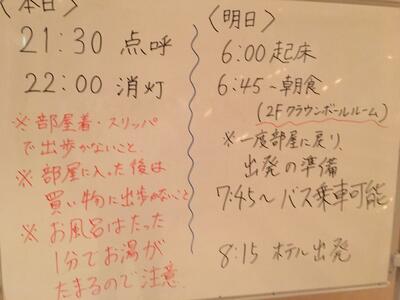 〈本日〉
21:30 点呼
22:00 消灯
※部屋着・スリッパ
で出歩かないこと
※部屋に入った後は
買い物に出歩かないこと
※お風呂はたった
1分でお湯が
たまるので注意
〈明日〉
6:00 起床
6:45〜朝食
(2Fクラウンボールルーム)
※一度部屋に戻り、
出発の準備
7:45〜バス乗車可能
8:15 ホテル出発